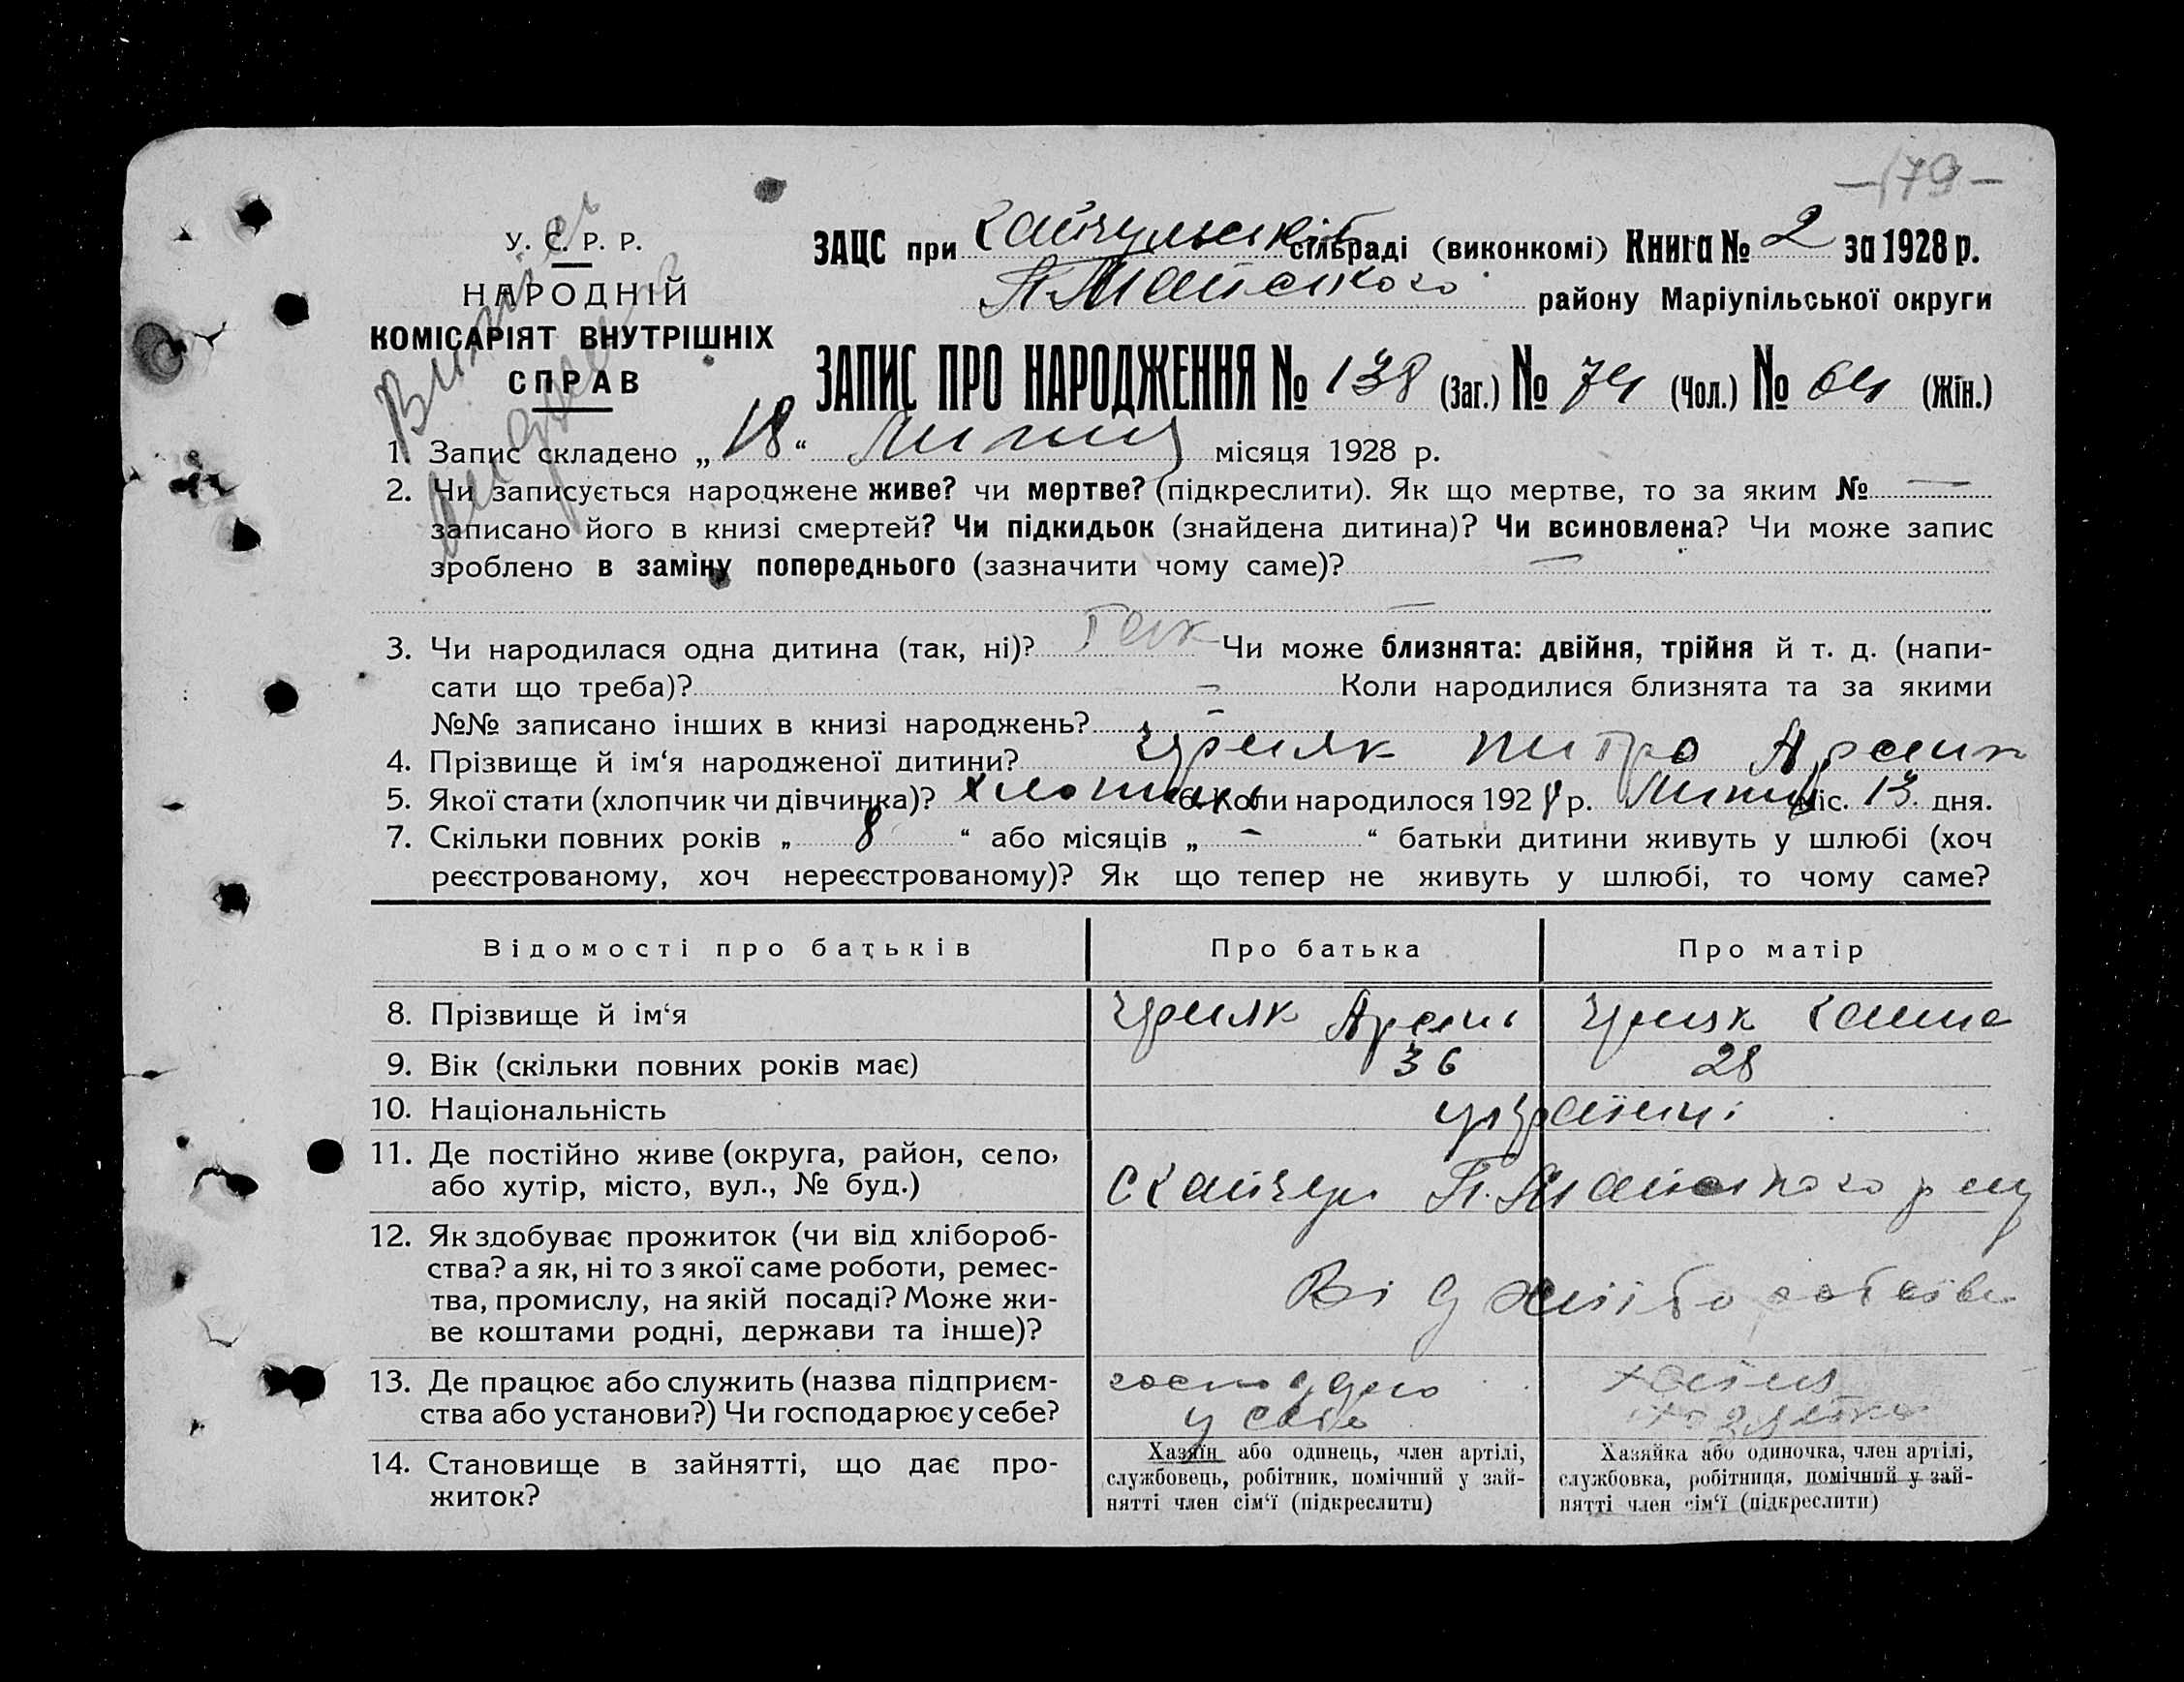 -179-
У. С. Р. Р.
НАРОДНІЙ
КОМІСАРІЯТ ВНУТРІШНІХ
СПРАВ
ЗАЦС при сільраді (виконкомі) Книга № 2 за 1928 р.
району Маріупільської округи
ЗАПИС ПРО НАРОДЖЕННЯ № 138 (Заг.) № 74 (Чол.) № 64 (Жін.)
1. Запис складено „18“ Липня місяця 1928 р.
2. Чи записується народжене живе? чи мертве? (підкреслити). Як що мертве, то за яким № —
записано його в книзі смертей? Чи підкидьок (знайдена дитина)? Чи всиновлена? Чи може запис
зроблено в заміну попереднього (зазначити чому саме)? —
—
3. Чи народилася одна дитина (так, ні)? Так Чи може близнята: двійня, трійня й т. д. (напи-
сати що треба)? — Коли народилися близнята та за якими
№№ записано інших в книзі народжень? —
4. Прізвище й ім‘я народженої дитини? Петро
5. Якої стати (хлопчик чи дівчинка)? хлопчик 6. Коли народилося 1928 р. Липня міс. 13 дня.
7. Скільки повних років „ 8 “ або місяців „ - “ батьки дитини живуть у шлюбі (хоч
реєстрованому, хоч нереєстрованому)? Як що тепер не живуть у шлюбі, то чому саме?
Відомості про батьків Про батька Про матір
8. Прізвище й ім‘я
9. Вік (скільки повних років має) 36 28
10. Національність українці
11. Де постійно живе (округа, район, село,
або хутір, місто, вул., № буд.)
12. Як здобуває прожиток (чи від хлібороб-
ства? а як, ні то з якої саме роботи, ремес-
тва, промислу, на якій посаді? Може жи-
ве коштами родні, держави та інше)?
Від
13. Де працює або служить (назва підприєм-
ства або установи?) Чи господарює у себе?
у себе
14. Становище в зайнятті, що дає про-
житок?
Хазяїн або одинець, член артілі,
службовець, робітник, помічний у зай-
нятті член сім‘ї (підкреслити)
Хазяйка або одиночка, член артілі,
службовка, робітниця, помічний у зай-
нятті член сім‘ї (підкреслити)